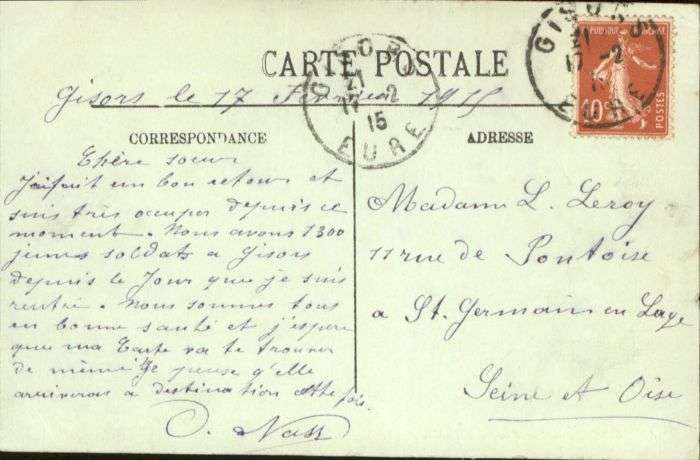 CARTE POSTALE
Gisors le 17 Février 1915
CORRESPONDANCE
Chère soeur
J'ai fait un bon retour et
suis très occuper depuis ce
moment. Nous avons 1300
jeunes soldats a Gisors
depuis le Jour que je suis
rentré. Nous sommes tous
en bonne santé et j'espère
que ma Carte va te trouver
de même Je pense q'elle
arriveras a destination cette fois.
O. Nass
GISORS
21
17 -2
15
EURE
ADRESSE
Madame L. Leroy
11 rue de Pontoise
a St. Germain en Laye
Seine et Oise
GISORS
21
17 -2
EURE
REPUBLIQUE FRANÇAISE
10
POSTES